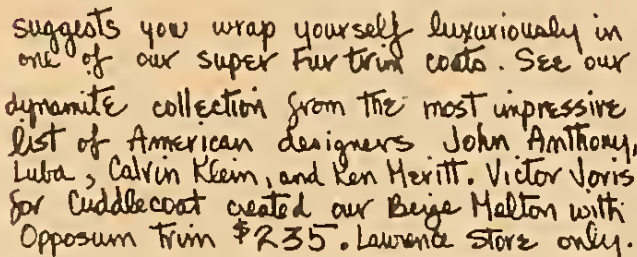 suggests you wrap yourself luxuriously in
one of our super Fur trim coats. See our
dynamite collection from the most impressive
list of American designers John Anthony,
Luba, Calvin Klein, and Ken Meritt. Victor Joris
for Cuddlecoat created our Beige Melton with
Opposum Trim $235. Lawrence Store only.